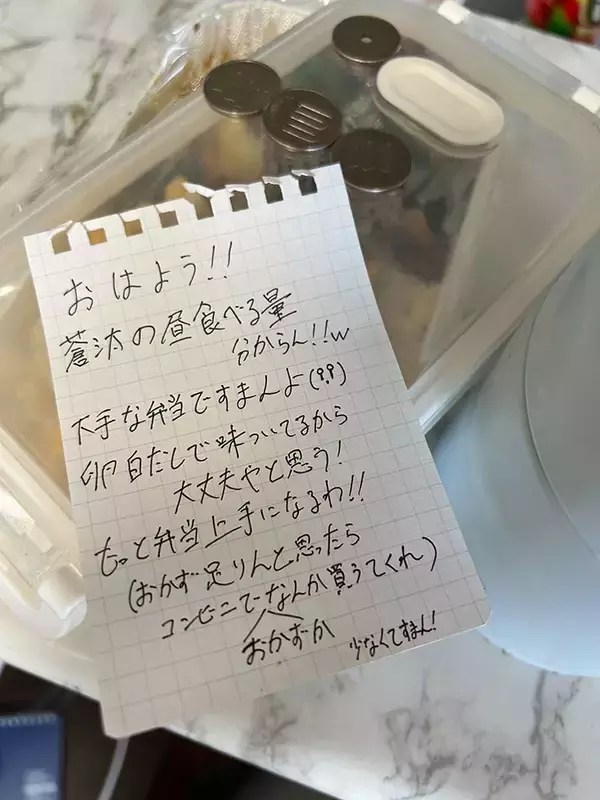 おはよう!!
蒼汰の昼食べる量
分からん!!w
下手な弁当ですまんよ(9,9)
卵白だしで味ついてるから
大丈夫やと思う!
もっと弁当上手になるわ!!
(おかず足りんと思ったら
コンビニでなんか買うてくれ)
おかずか
少なくてすまん!